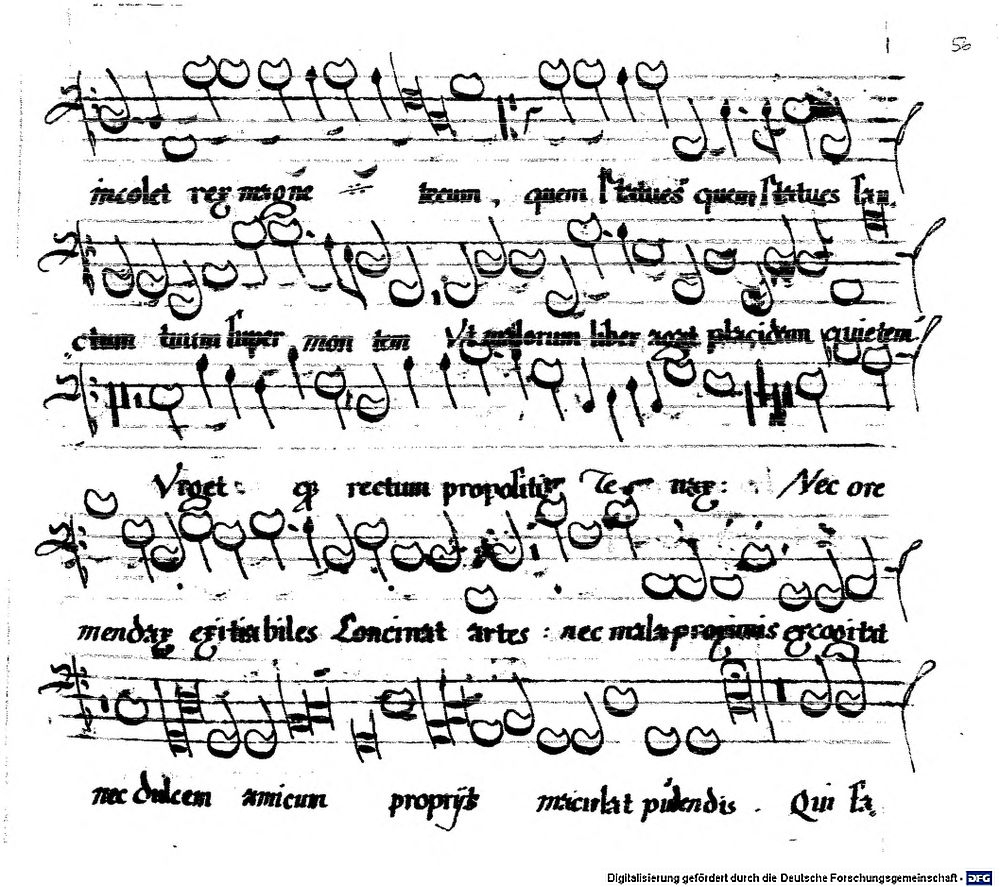 56
incolet rex magne tecum, quem statues quem statues san
ctum tuum super mon tem Vt malorum liber agat placidam quietem
Vrget: qz rectum propositū Te nax: Nec ore
mendax exitiabiles Concinat artes: nec mala proximis excogitat
nec dulcem amicum proprijs maculat pudendis. Qui fa
Digitalisierung gefördert durch die Deutsche Forschungsgemeinschaft - DFG